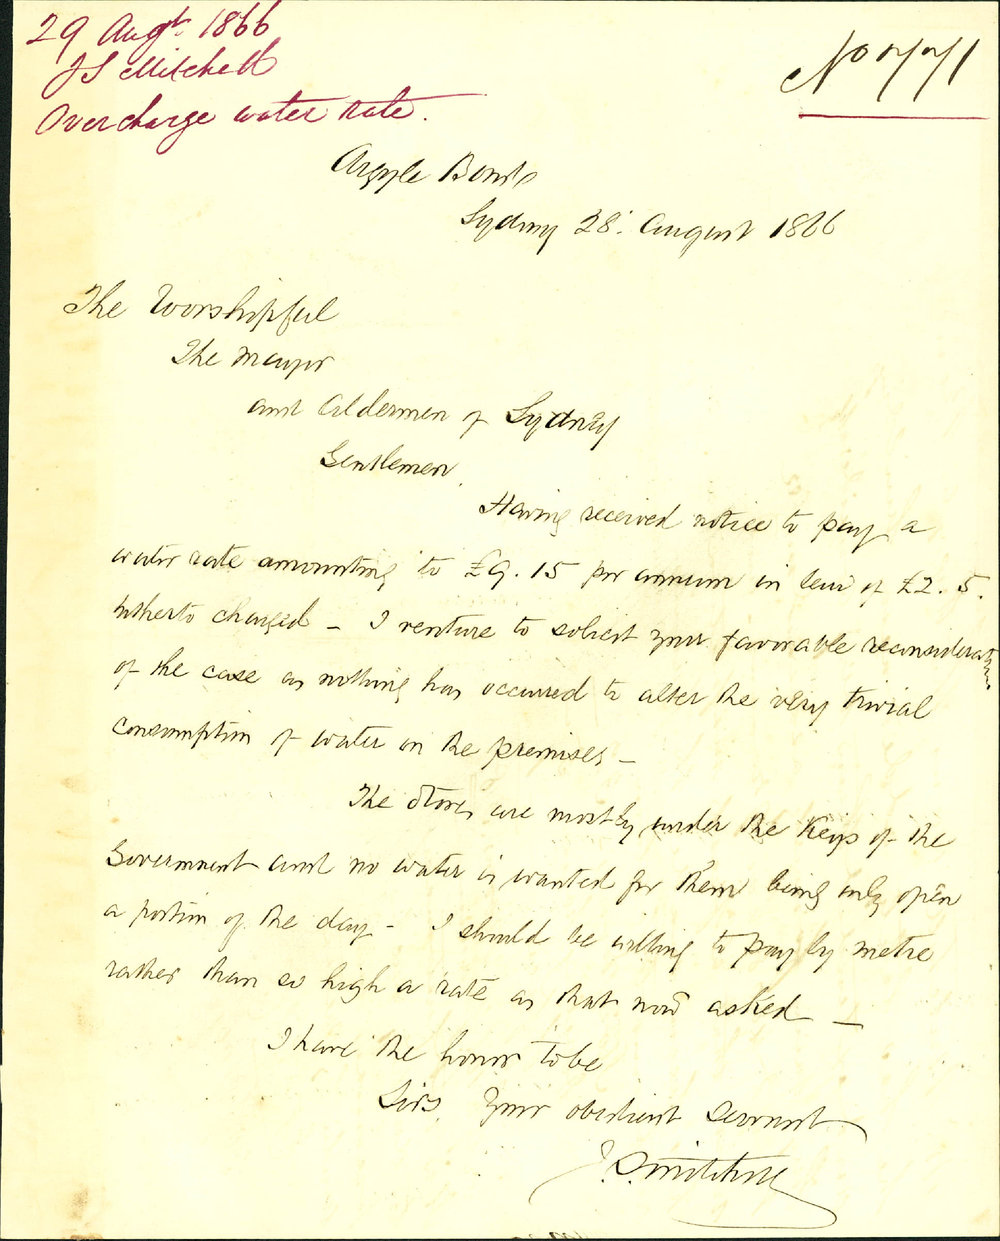 29 Augt. 1866
J S Mitchell
Overcharge water rate.
No 771
Argyle Bonds
Sydney 28. August 1866
The Worshipful
The Mayor
and Aldermen of Sydney
Gentlemen,
Having received notice to pay a
water rate amounting to £9.15 per annum in leui of £2.5.
hitherto charged – I venture to solicit your favorable reconsideration
of the case as nothing has occurred to alter the very trivial
consumption of water on the premises –
The Stores are mostly under the Keys of the
Government and no water is wanted for them being only open
a portion of the day – I should be willing to pay by metre
rather than so high a rate as that now asked –
I have the honor to be
Sirs, Your obedient servant
J. S. Mitchell